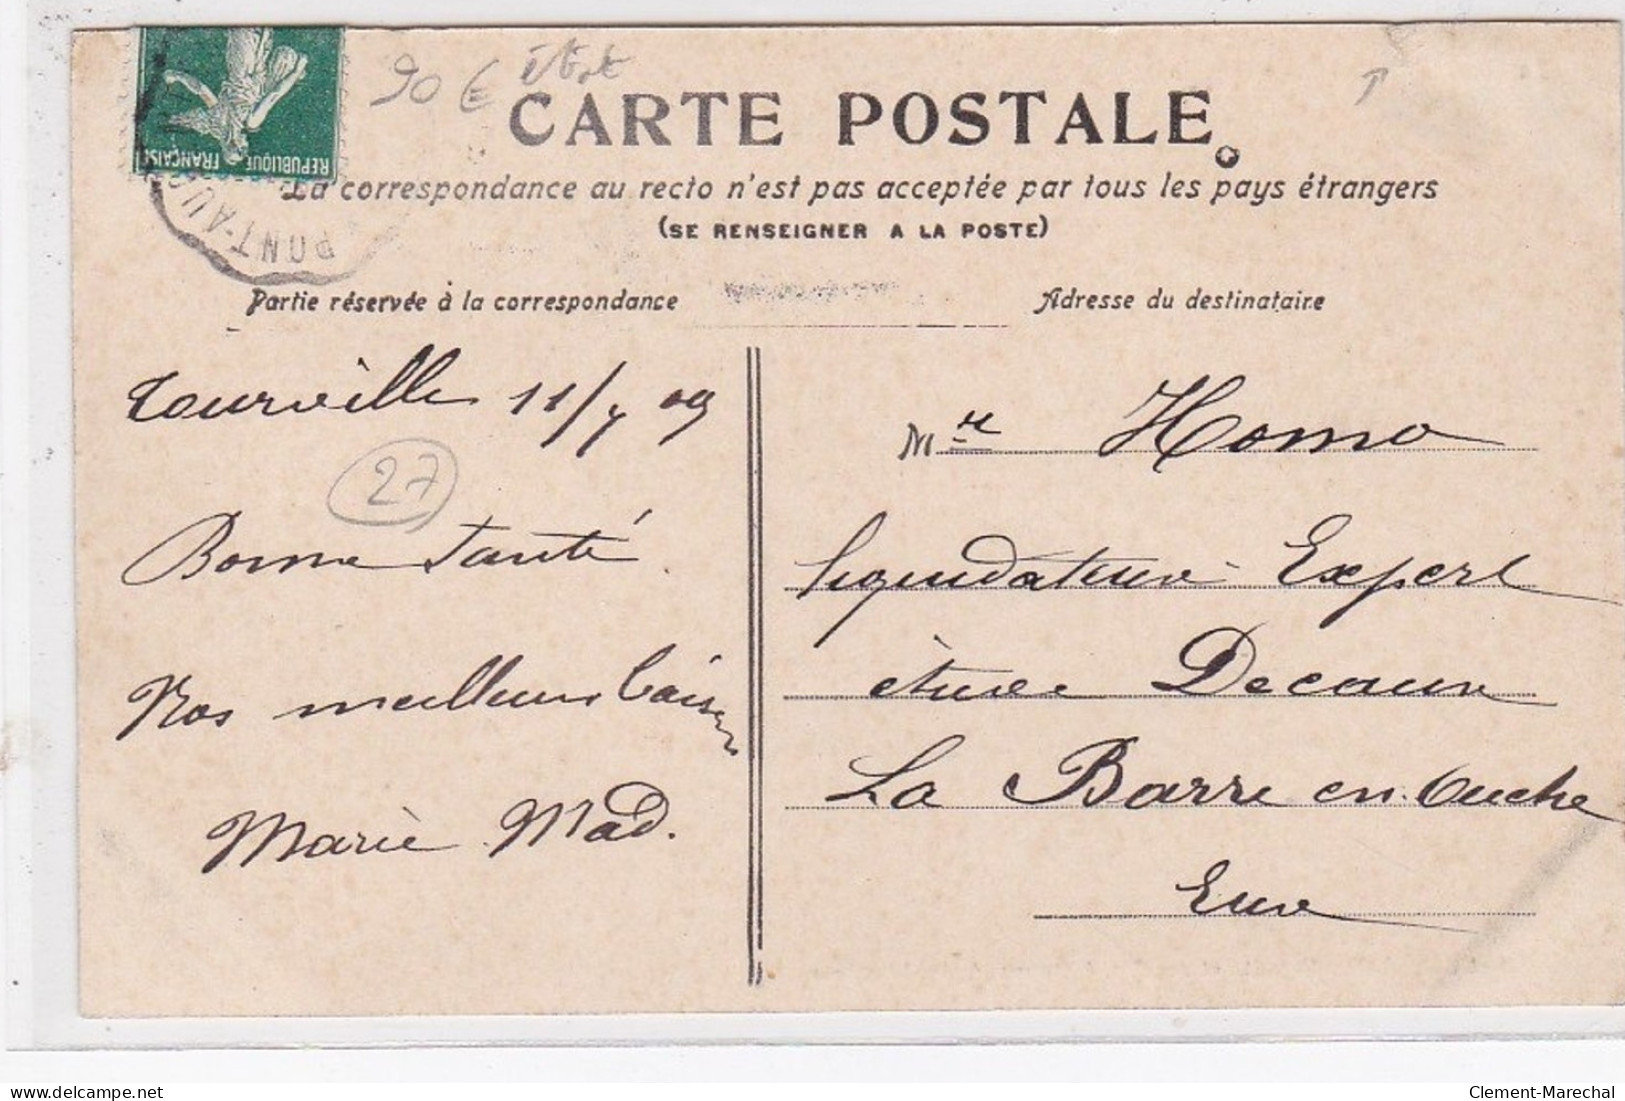 REPUBLIQUE
FRANÇAISE
90 € état
CARTE POSTALE
La correspondance au recto n'est pas acceptée par tous les pays étrangers
(SE RENSEIGNER A LA POSTE)
PONT-AU
Partie réservée à la correspondance
Adresse du destinataire
Tourville 11/7 09
27
Bonne Santé.
Nos meilleurs baisers
Marie Mad.
Homo
liquidateur Expert
étude Decaux
La Barre en Ouche
Eure
delcampe.net
Clement-Marechal